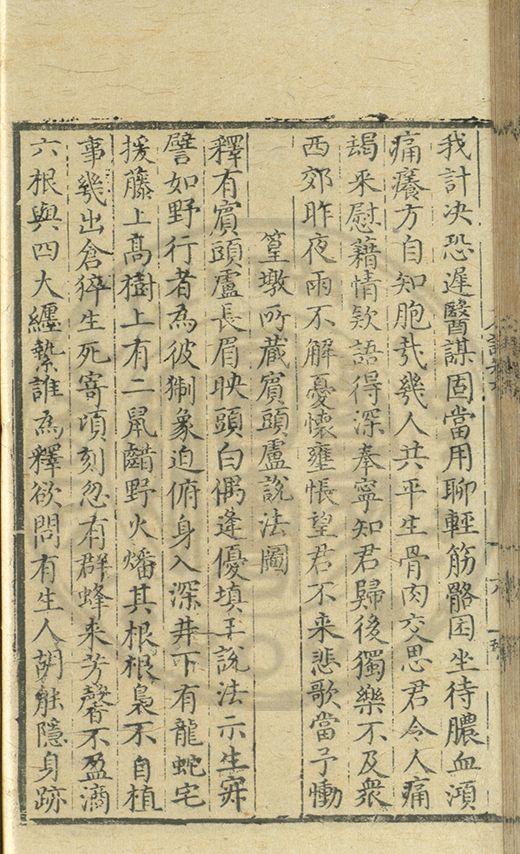 我計决恐遲醫謀固當用聊輕筋骼困坐待膿血澒
痛癢方自知胞㦲幾人共平生骨肉交思君令人痛
朅来慰藉情欵語得深奉寧知君歸後獨樂不及衆
西郊昨夜雨不解憂懷壅悵望君不来悲歌當予慟
篁墩所藏賔頭盧說法圖
釋有賔頭盧長眉映頭白偶逢優填王說法示生寂
譬如野行者為彼猘象迫俯身入深井下有龍蛇宅
援藤上髙樹上有二鼠齰野火燔其根根裊不自植
事幾出倉猝生死寄頃刻忽有群蜂来芳馨不盈滴
六根與四大纒縶誰為釋欲問有生人胡能隱身跡